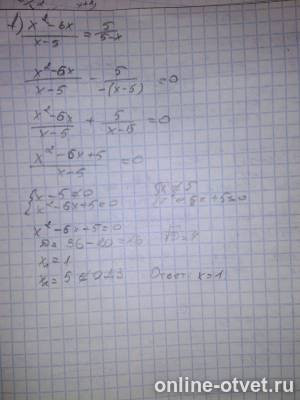 1) (x² - 6x)/(x-5) = 5/(5-x)
(x² - 6x)/(x-5) - 5/(-(x-5)) = 0
(x² - 6x)/(x-5) + 5/(x-5) = 0
(x² - 6x + 5)/(x-5) = 0
{ x - 5 ≠ 0
{ x² - 6x + 5 = 0
x² - 6x + 5 = 0
D = 36 - 20 = 16
x₁ = 1
x₂ = 5 Ответ: x = 1
online-otvet.ru